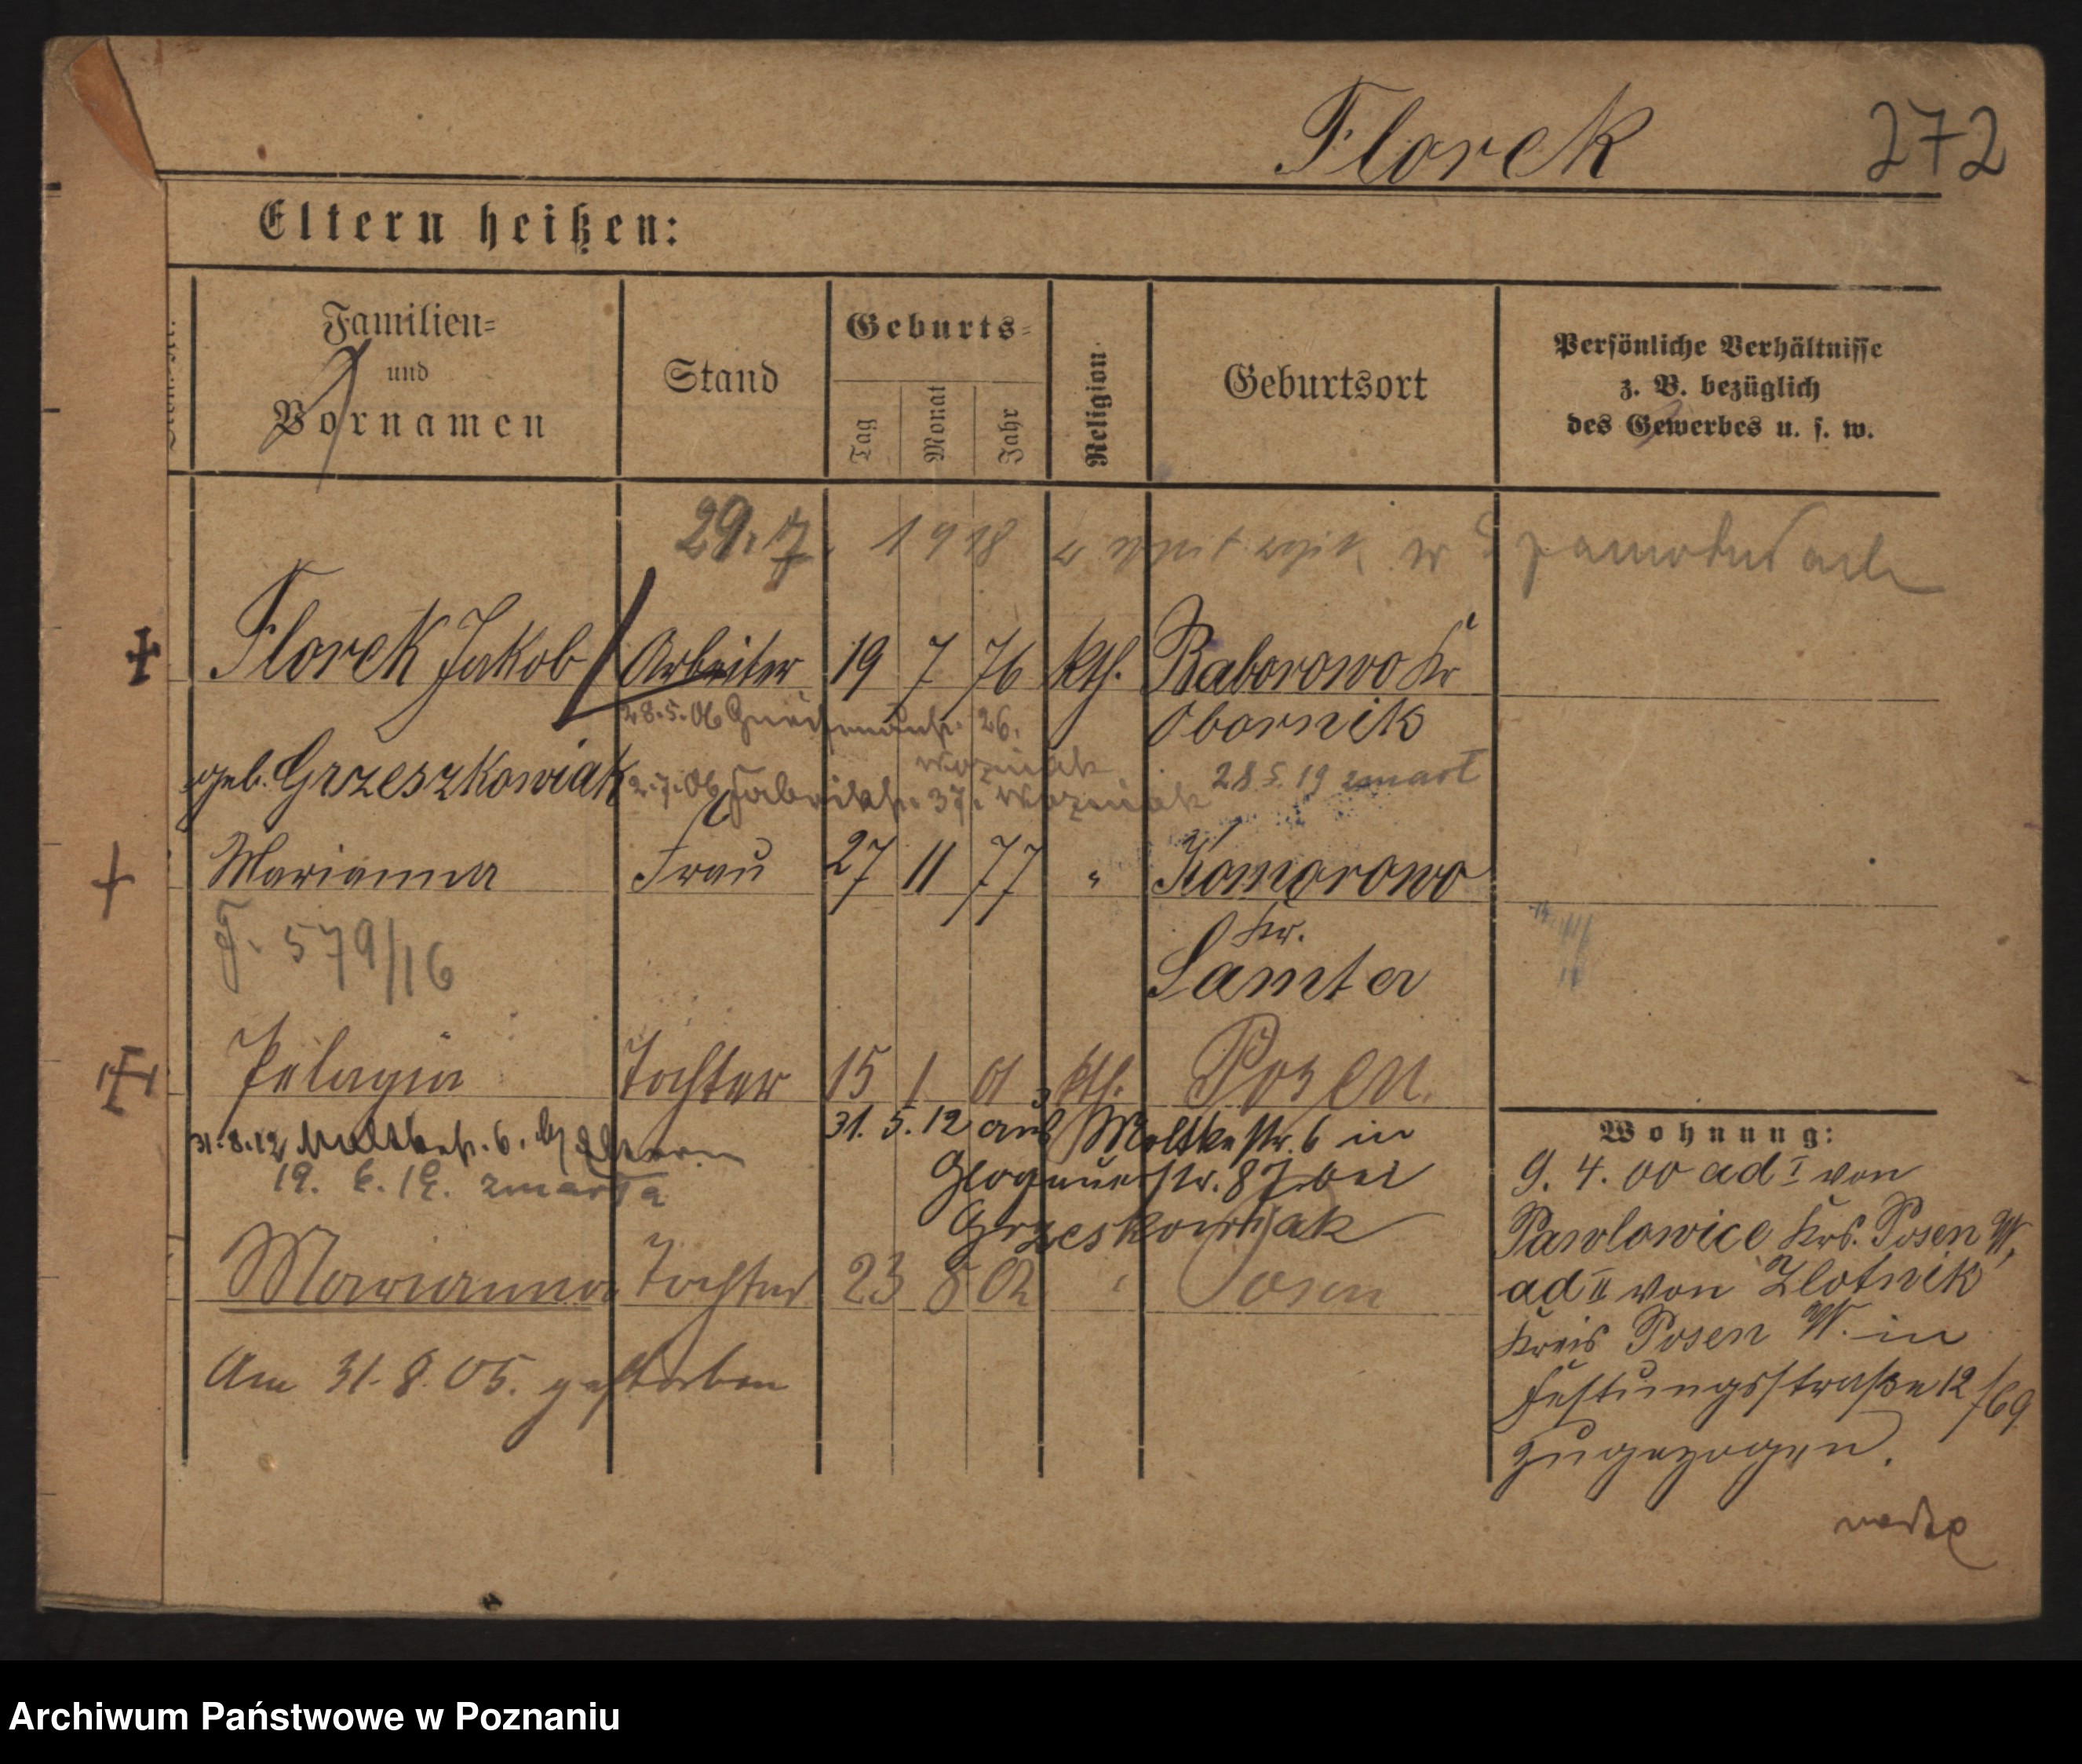 Florek 272
Eltern heißen:
Familien=
und
Vornamen
Stand
Geburts=
Tag
Monat
Jahr
Religion
Geburtsort
Persönliche Verhältnisse
z. B. bezüglich
des Gewerbes u. s. w.
29.7. 1918 w
Florek Jakob Arbeiter 19 7 76 kth. Baborowo Kr
28.5.06 26. Obornik
Wozniak
geb. Grzeszkowiak 2.7.06 Fabrikstr. 37. Wozniak 28.5.19 zmarł
Marianna Frau 27 11 77 " Komorowo
Kr.
F. 579/16 Samter
Pelagia Tochter 15 1 01 kth. Posen.
31.8.12 Moltkestr. 6. b/ Eltern
31.5.12 aus Moltkestr. 6 in
19. 6. 19. zmarła
Glogauerstr. 87 bei
Grzeskowiak
Marianna Tochter 23 8 02 " Posen
Am 31.8.05. gestorben
Wohnung:
9. 4. 00 ad I von
Pawlowice Krs. Posen W,
ad II von Zlotnik
Kreis Posen W. in
Festungsstraße 12/69
zugezogen.
Archiwum Państwowe w Poznaniu